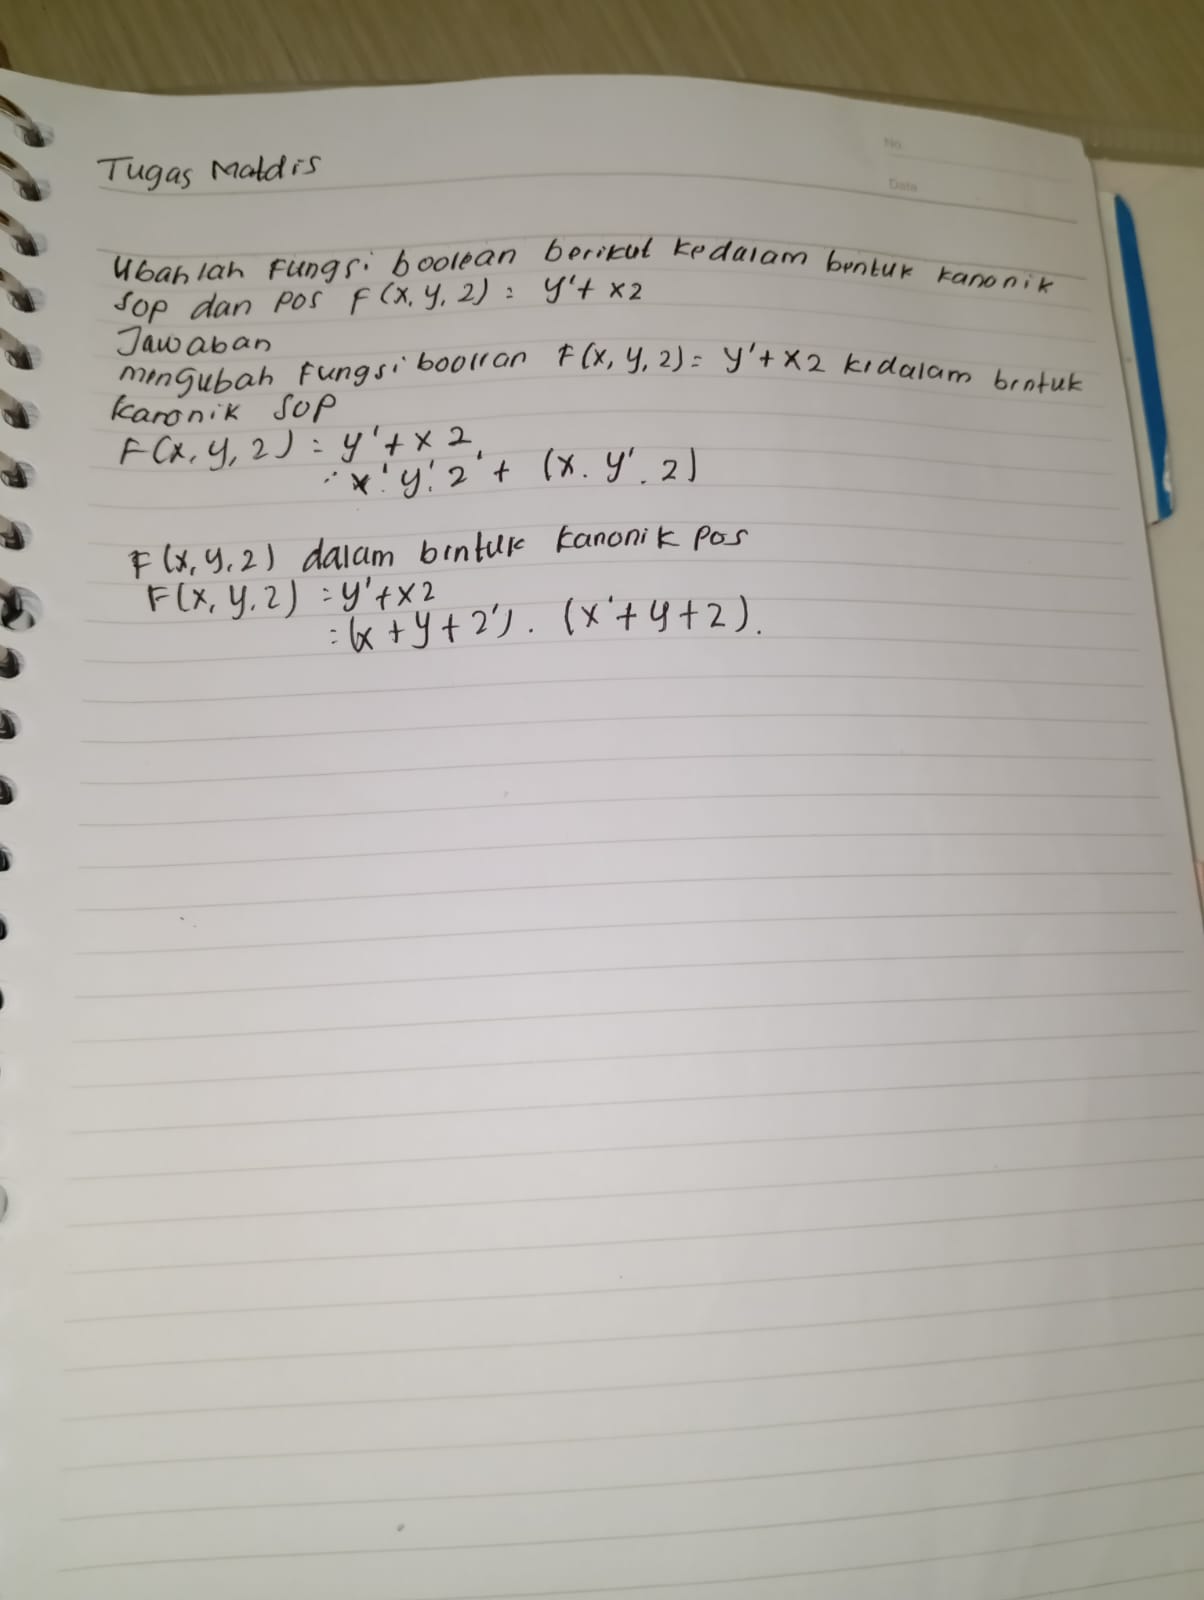 No
Date
Tugas Matdis
Ubahlah Fungsi boolean berikut kedalam bentuk kanonik
SOP dan POS F(x, y, z) = y' + xz
Jawaban
mengubah Fungsi boolean F(x, y, z) = y' + xz kedalam bentuk
Kanonik SOP
F(x, y, z) = y' + xz
= x'. y'. z' + (x. y'. z)
F(x, y, z) dalam bentuk kanonik pos
F(x, y, z) = y' + xz
= (x + y + z'). (x' + y + z).